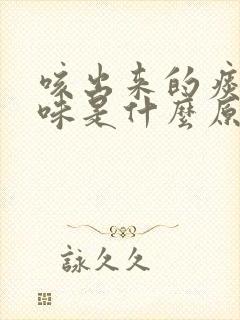 咳出来的痰
味是什麼原
詠久久